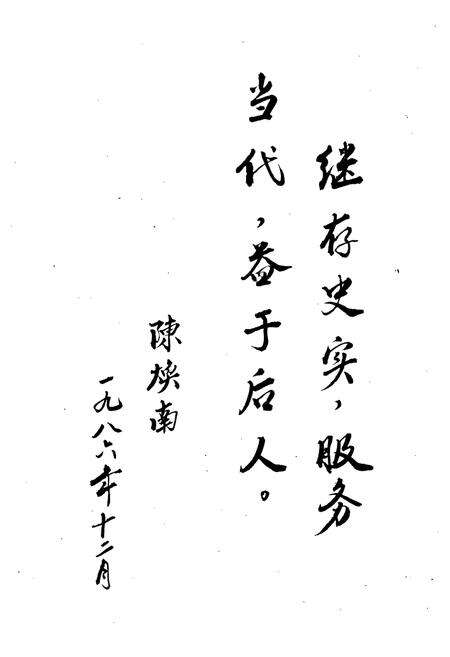 继存史实，服务
当代，益于后人。
陳焕南
一九八六年十二月